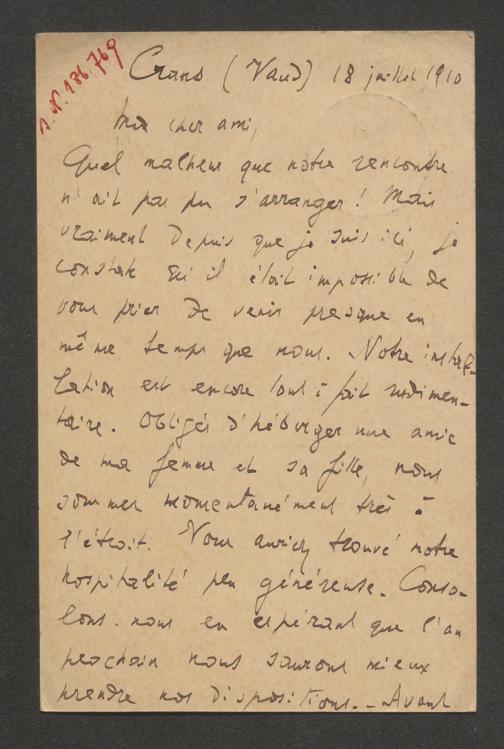 D. N. 186,769
Crans (Vaud) 18 juillet 1910
Mon cher ami,
Quel malheur que notre rencontre
n'ait pas pu s'arranger ! Mais
vraiment depuis que je suis ici, je
constate qu'il était impossible de
vous prier de venir presque en
même temps que nous. Notre instal-
lation est encore tout à fait rudimen-
taire. Obligés d'héberger une amie
de ma femme et sa fille, nous
sommes momentanément très à
l'étroit. Vous auriez trouvé notre
hospitalité peu généreuse. Conso-
lons-nous en espérant que l'an
prochain nous saurons mieux
prendre nos dispositions. - Avant